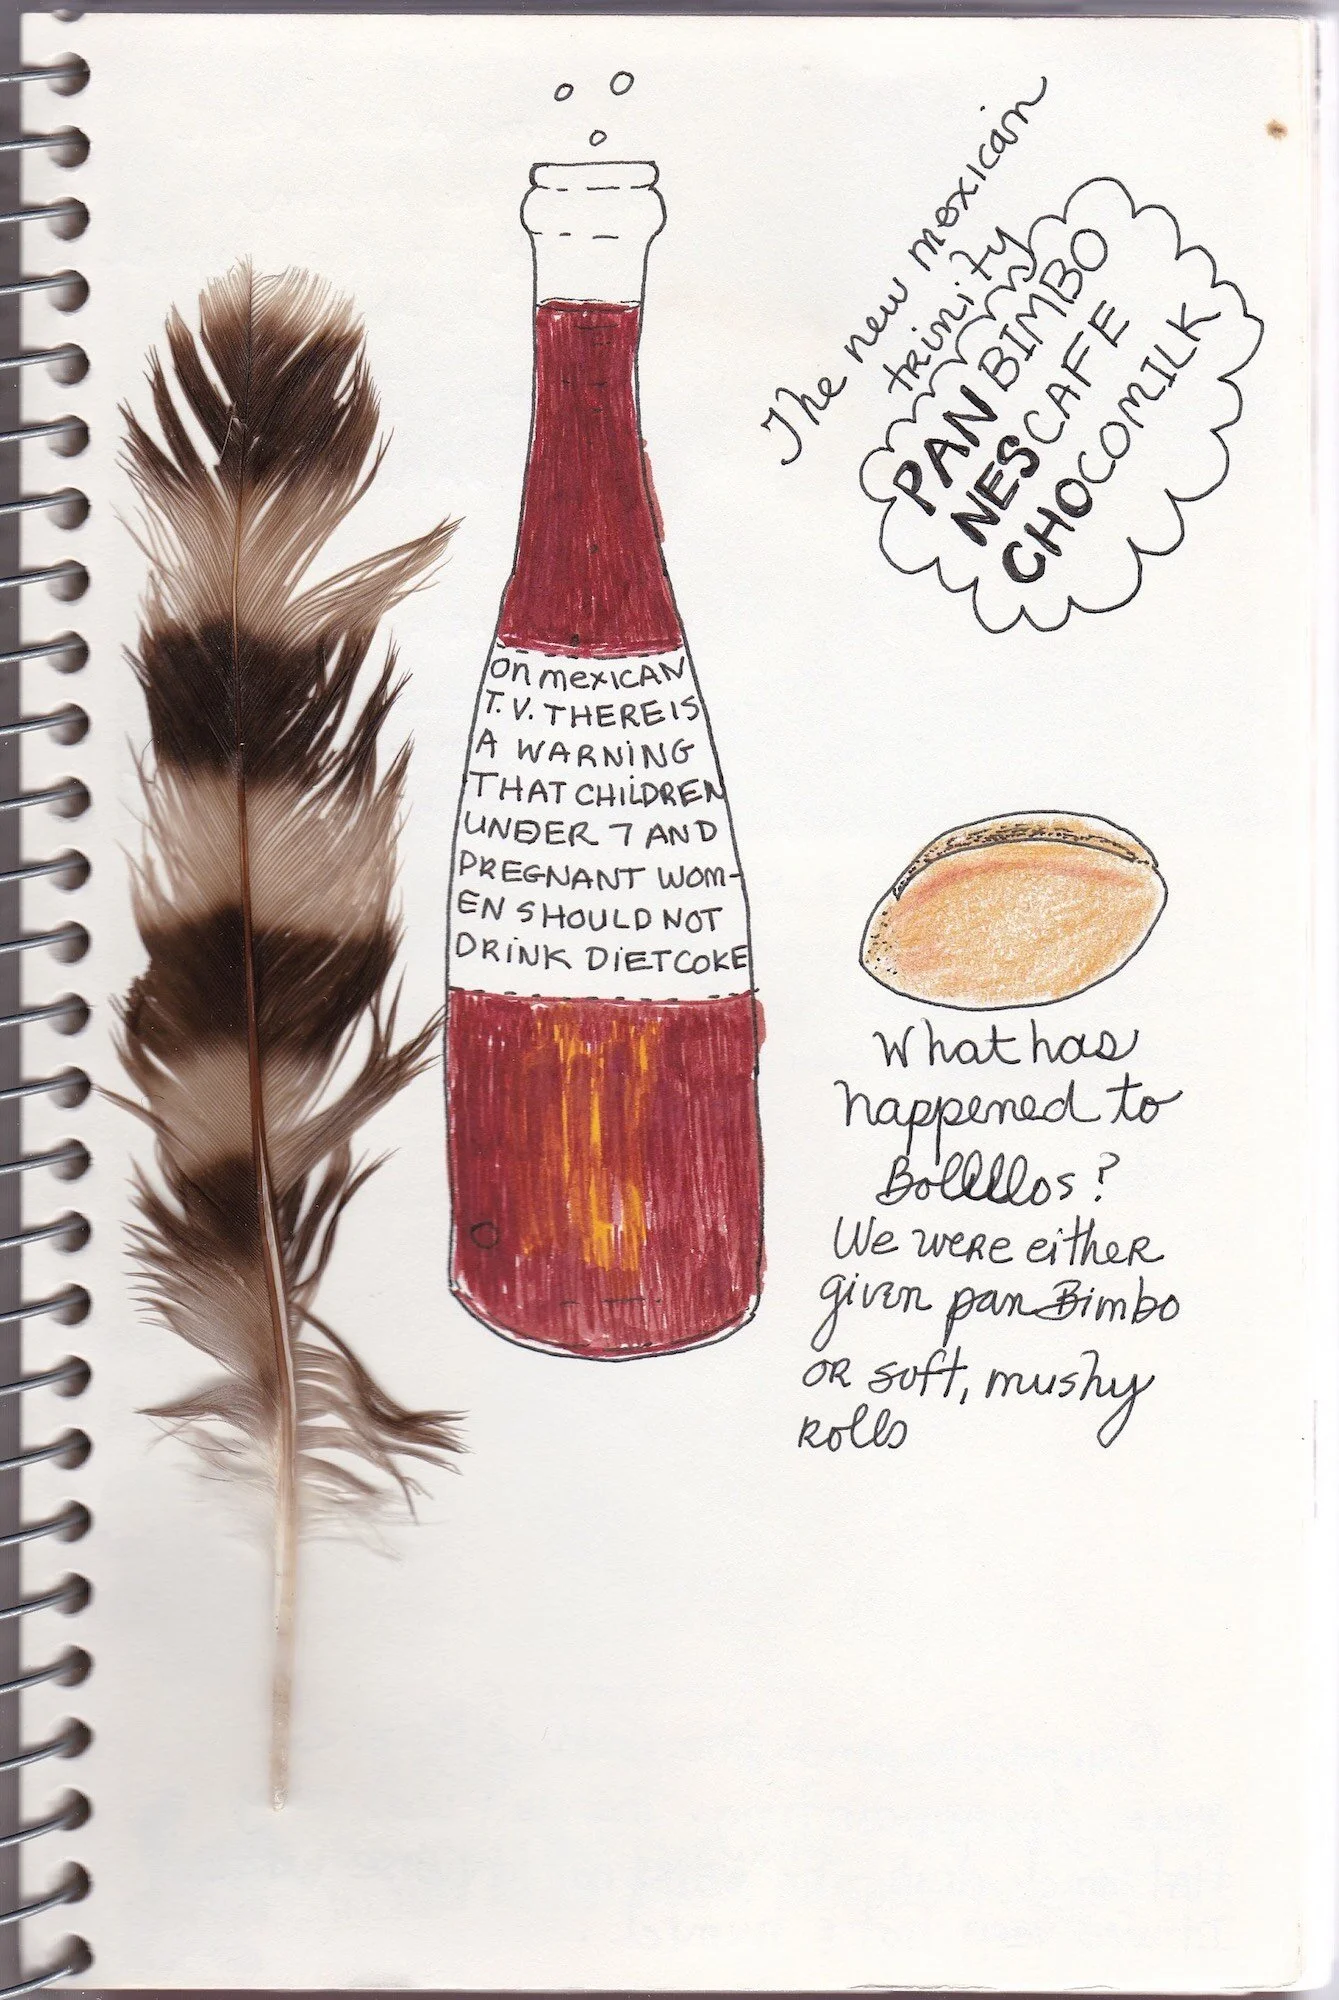 The new mexican
trinity
PAN BIMBO
NESCAFE
CHOCOMILK
On mexICAN
T.V. THERE IS
A WARNING
THAT CHILDREN
UNDER 7 AND
PREGNANT WOM-
EN SHOULD NOT
DRINK DIET COKE
What has
happened to
Bolillos?
We were either
given pan Bimbo
or soft, mushy
rolls